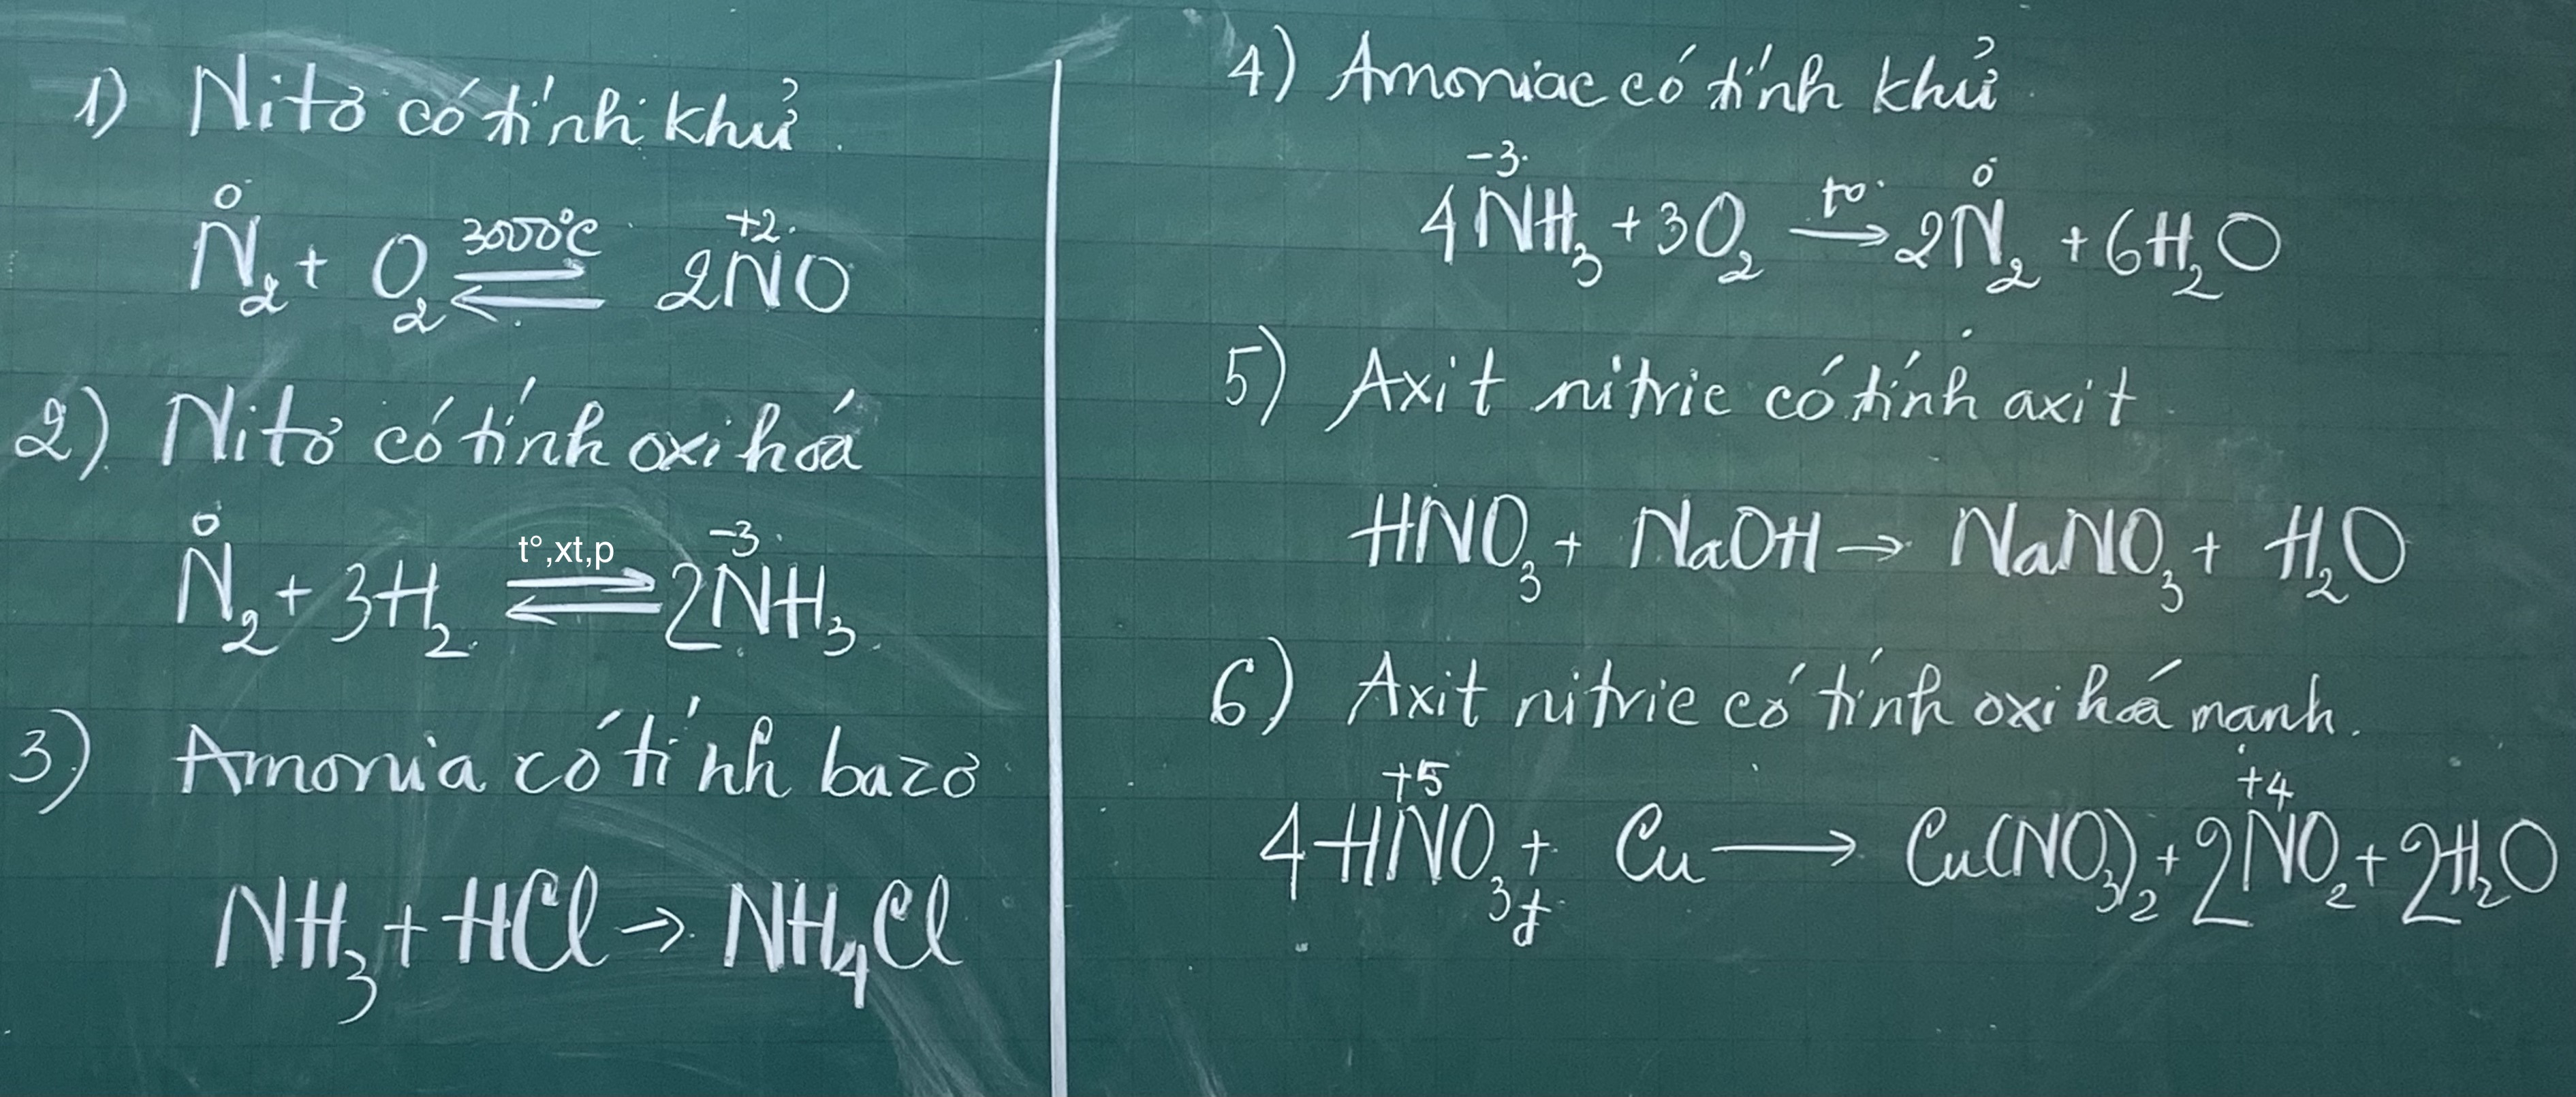 1) Nitơ có tính khử
0 +2
N₂ + O₂ ⇌ 2NO
3000°C
2) Nitơ có tính oxi hoá
0 t°,xt,p -3
N₂ + 3H₂ ⇌ 2NH₃
3) Amonia có tính bazơ
NH₃ + HCl → NH₄Cl
4) Amoniac có tính khử
-3 t° 0
4NH₃ + 3O₂ → 2N₂ + 6H₂O
5) Axit nitric có tính axit
HNO₃ + NaOH → NaNO₃ + H₂O
6) Axit nitric có tính oxi hoá mạnh.
+5 +4
4HNO₃ + Cu → Cu(NO₃)₂ + 2NO₂ + 2H₂O
đ